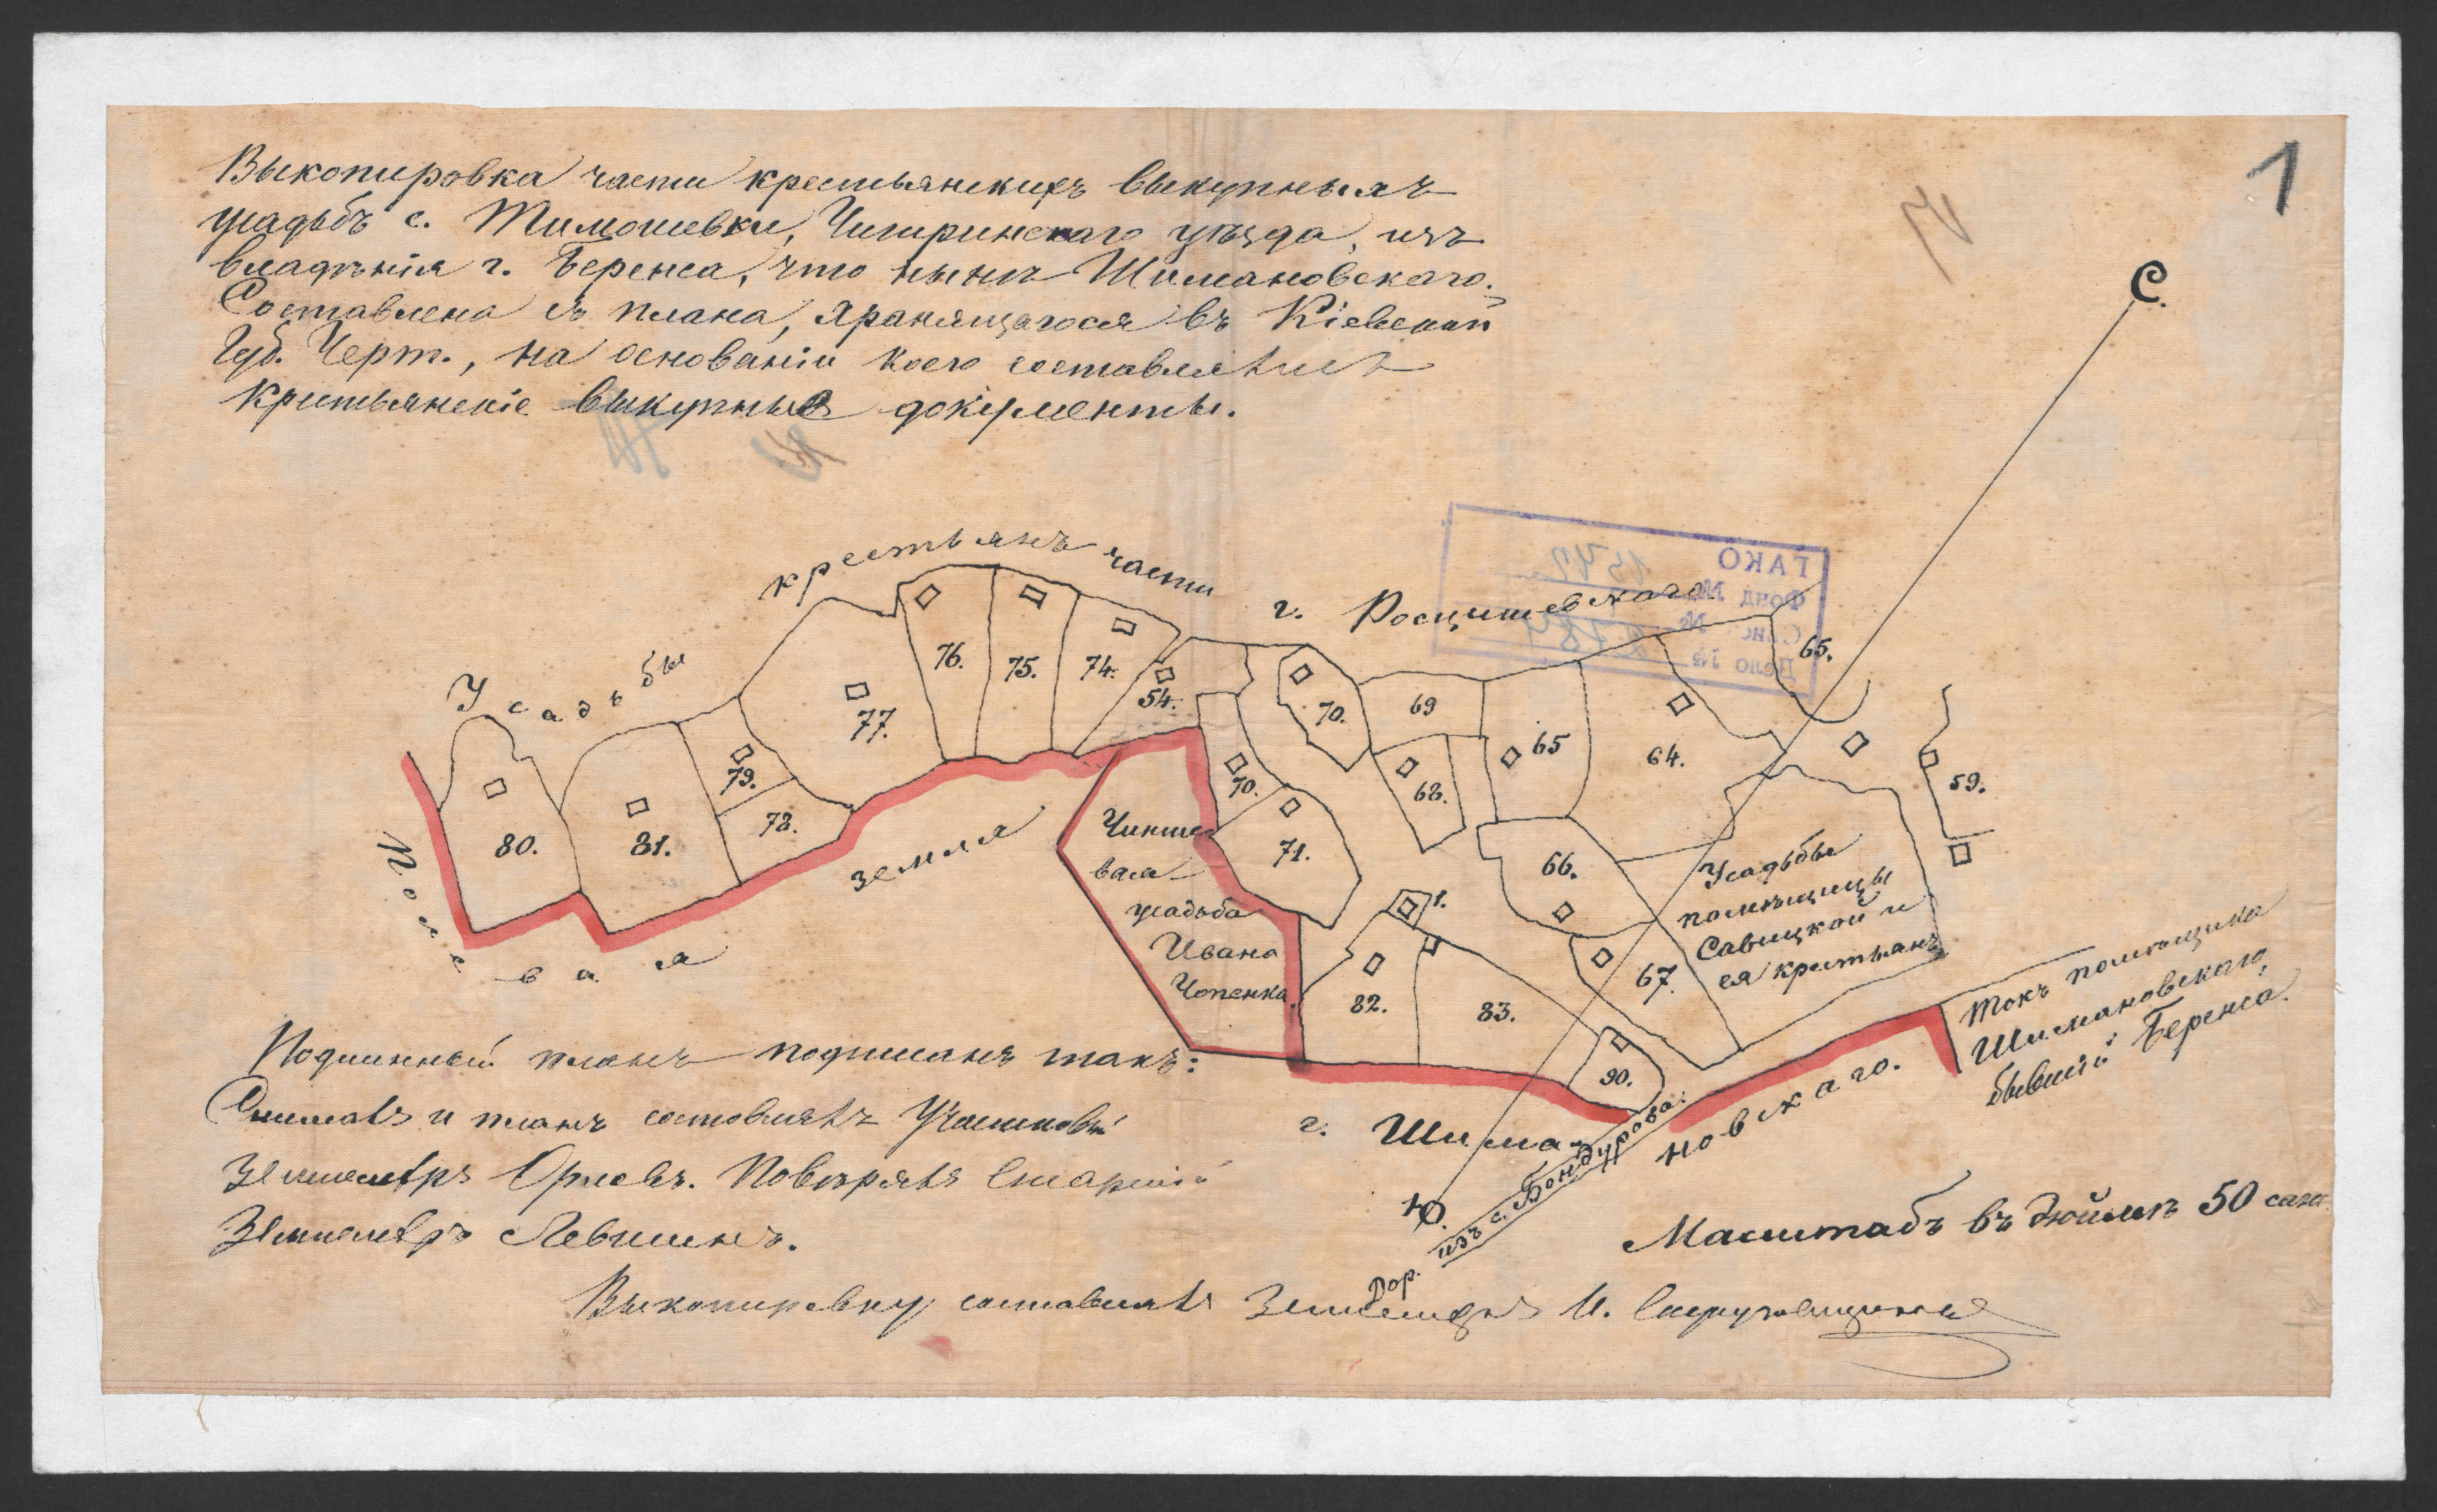 1
Выкопировка части крестьянскихъ выкупныхъ
усадьбъ с. Тимошевки, Чигиринскаго уѣзда, изъ
владѣнія г. Беренса, что нынѣ Шимановскаго.
Составлена съ плана, хранящагося въ Кіевской
Губ. Черт., на основаніи коего составлялись
крестьянскіе выкупные документы.
С.
Усадьбы крестьянъ части г. Росцишевскаго
ГАКО
Фонд № 1542
№
Дело № 2784
76.
75.
74.
54.
77.
79.
78.
80.
81.
70.
69
65
64.
65.
59.
68.
70.
71.
66.
67.
1.
82.
83.
90.
Полевая земля
Чинше
вая
усадьба
Ивана
Чопенка.
Усадьбы
помѣщицы
Савицкой и
ея крестьянъ
Токъ помѣщика
Шимановскаго,
бывшій Беренса.
г. Шимановскаго.
Дор. изъ с. Бондурова.
Ю.
Подлинный планъ подписанъ такъ:
Снималъ и планъ составлялъ Участковый
Землемѣръ Орловъ. Повѣрялъ Старшій
Землемѣръ Левшинъ.
Масштабъ въ дюймѣ 50 саж.
Выкопировку составлялъ Землемѣръ И.